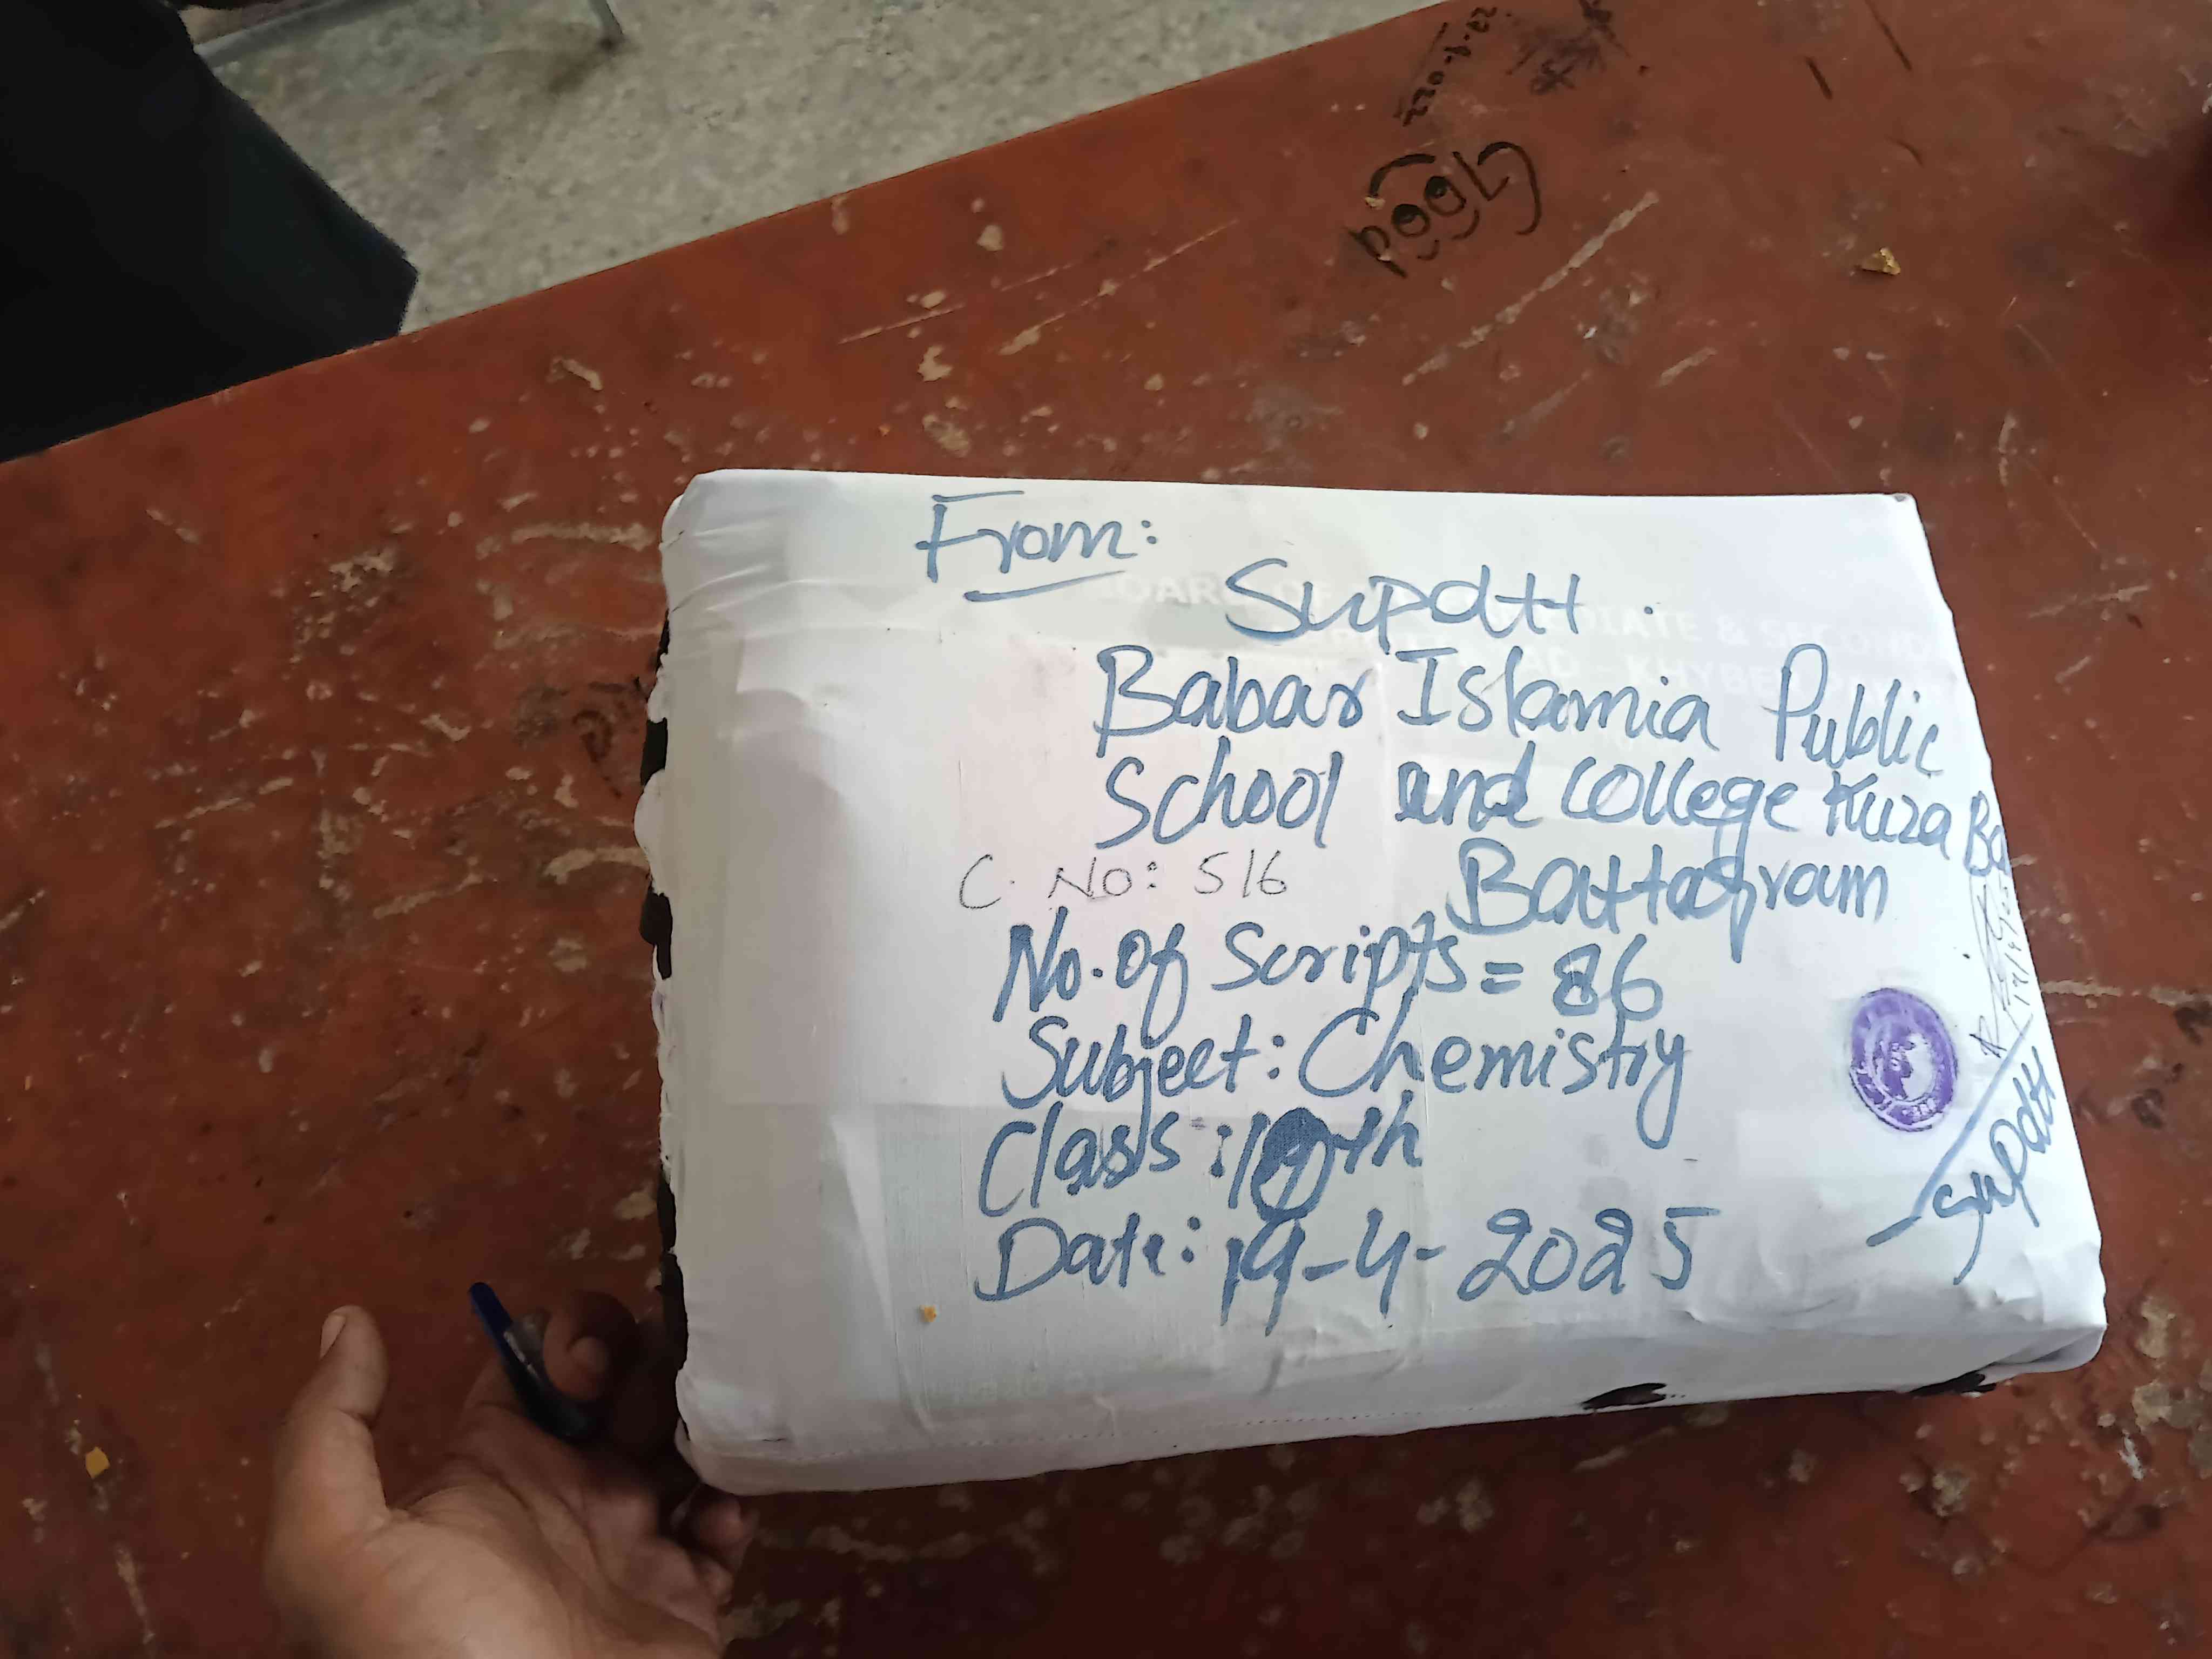 From:
Supdtt.
Babar Islamia Public
School and College Kuza Ba
Battagram
C. No: 516
No. of Scripts = 86
Subject: Chemistry
Class: 10th
Date: 19-4-2025
Supdtt